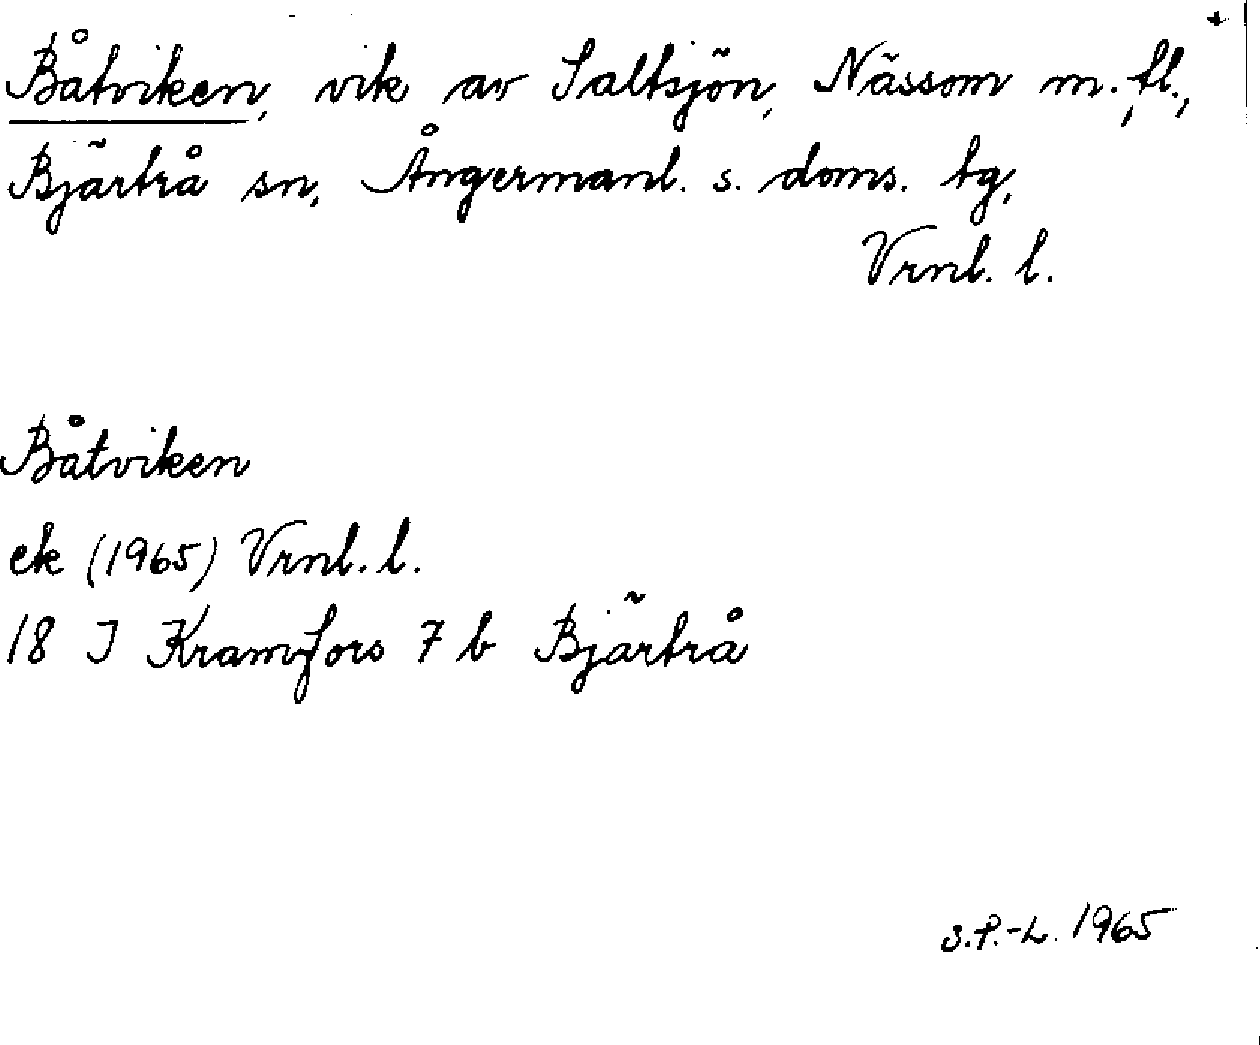 Båtviken, vik av Saltsjön, Nässom m. fl.,
Bjärtrå sn, Ångermanl. s. doms. tg,
Vrnl. l.
Båtviken
ek (1965) Vrnl. l.
18 I Kramfors 7 b Bjärtrå
S.P.-L. 1965